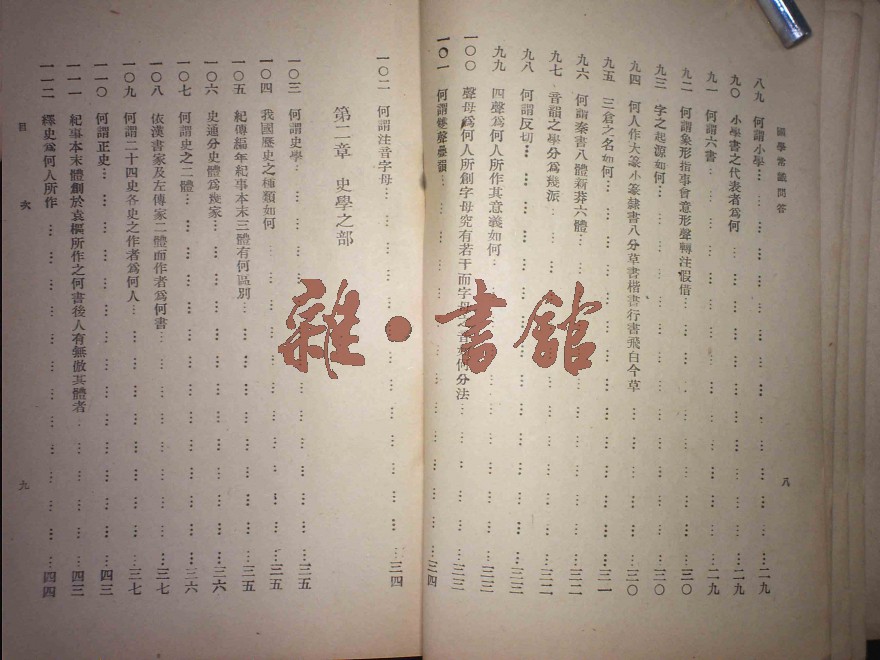 國學常識問答
八
八九 何謂小學…二九
九〇 小學書之代表者爲何…二九
九一 何謂六書…二九
九二 何謂象形指事會意形聲轉注假借…三〇
九三 字之起源如何…三〇
九四 何人作大篆小篆隸書八分草書楷書行書飛白今草…三〇
九五 三倉之名如何…三一
九六 何謂秦書八體新莽六體…三二
九七 音韻之學分爲幾派…三二
九八 何謂反切…三三
九九 四聲爲何人所作其意義如何…三三
一〇〇 聲母爲何人所創字母究有若干而字母之音有何分法…三三
一〇一 何謂雙聲疊韻…三四
一〇二 何謂注音字母…三四
第二章 史學之部
一〇三 何謂史學…三五
一〇四 我國歷史之種類如何…三五
一〇五 紀傳編年紀事本末三體有何區別…三五
一〇六 史通分史體爲幾家…三六
一〇七 何謂史之二體…三六
一〇八 依漢書家及左傳家二體而作者爲何書…三七
一〇九 何謂二十四史各史之作者爲何人…三七
一一〇 何謂正史…四三
一一一 紀事本末體創於袁樞所作之何書後人有無倣其體者…四三
一一二 繹史爲何人所作…四四
目次
九
雜·書館